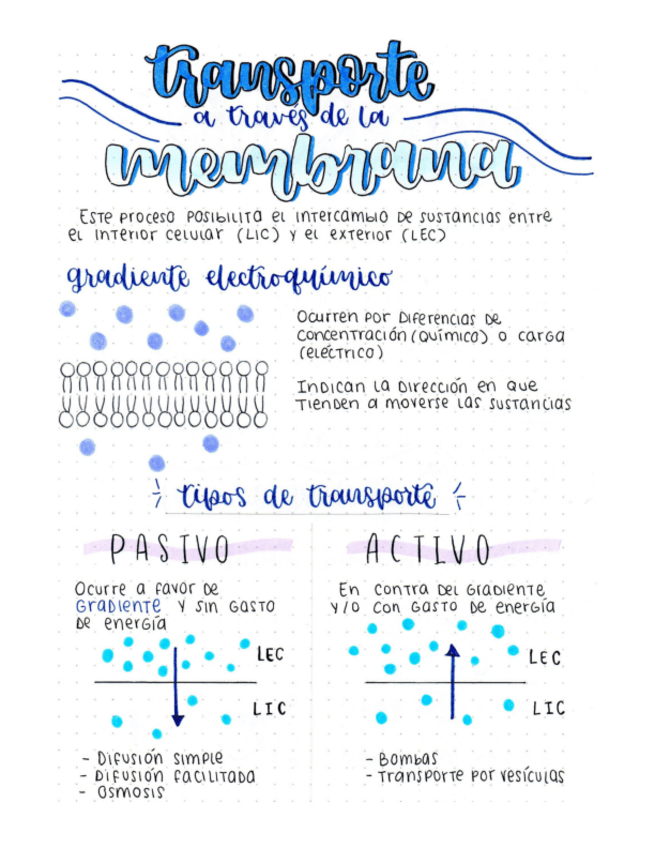 transporte
a través de la
membrana
Este proceso posibilita el intercambio de sustancias entre
el interior celular (LIC) y el exterior (LEC)
gradiente electroquímico
Ocurren por diferencias de
concentración (químico) o carga
(eléctrico)
Indican la dirección en que
tienden a moverse las sustancias
tipos de transporte
PASIVO
Ocurre a favor de
gradiente y sin gasto
de energía
LEC
LIC
- Difusión simple
- Difusión facilitada
- Osmosis
ACTIVO
En contra del gradiente
y/o con gasto de energía
LEC
LIC
- Bombas
- Transporte por vesículas